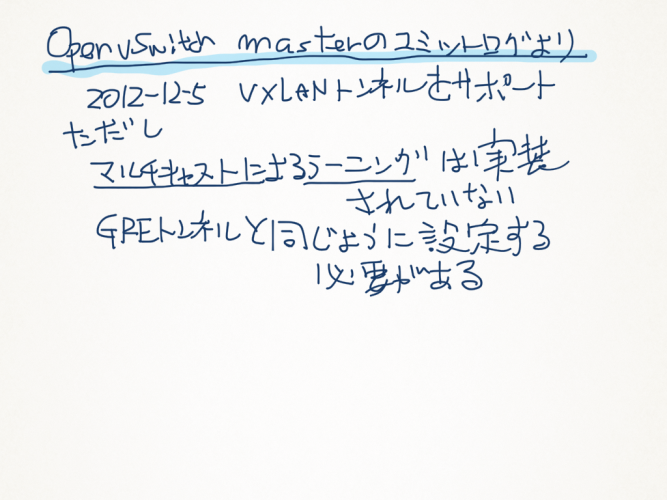 OpenvSwitch masterのコミットログより
2012-12-5 VXLANトンネルをサポート
ただし
マルチキャストによるラーニングは実装
されていない
GREトンネルと同じように設定する
必要がある